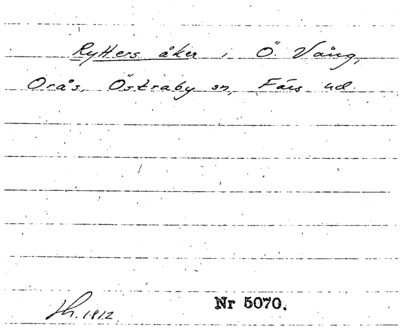 Rytters åker i Ö Vång,
Orås, Östraby sn, Färs hd.
1912
Nr 5070.